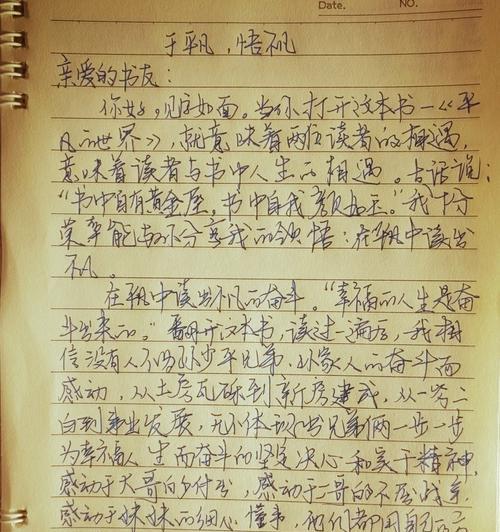 Date.
NO.
于平凡，悟不凡
亲爱的书友：
你好，见字如面。当你打开这本书—《平
凡的世界》，就意味着两位读者的相遇，
意味着读者与书中人生的相遇。古话说：
“书中自有黄金屋，书中自我颜如玉。”我十分
荣幸能与你分享我的领悟：在平凡中读出
不凡。
在平凡中读出不凡的奋斗。“幸福的人生是奋
斗出来的。”翻开这本书，读过一遍后，我相
信没有人不为孙少平兄弟、孙家人的奋斗而
感动，从土房瓦砾到新房建成，从一穷二
白到事业发展，无不体现出兄弟俩一步一步
为幸福人生而奋斗的坚定决心和实干精神，
感动于大哥的付出，感动于二哥的不屈
感动于妹妹的细心懂事，他们都用自己的